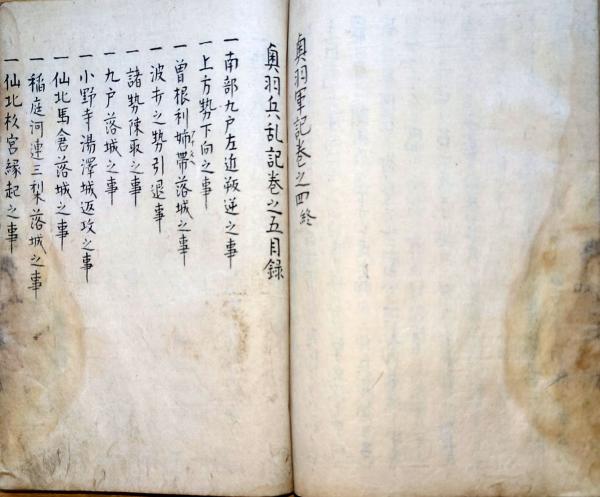 奥羽軍記巻之四終
奥羽兵乱記巻之五目録
一南部九戸左近叛逆之事
一上方勢下向之事
一曽根利姉帯落城之事
一波打之勢引退事
一諸勢陳取之事
一九戸落城之事
一小野寺湯澤城返攻之事
一仙北馬倉落城之事
一稲庭河連三梨落城之事
一仙北杉宮縁起之事